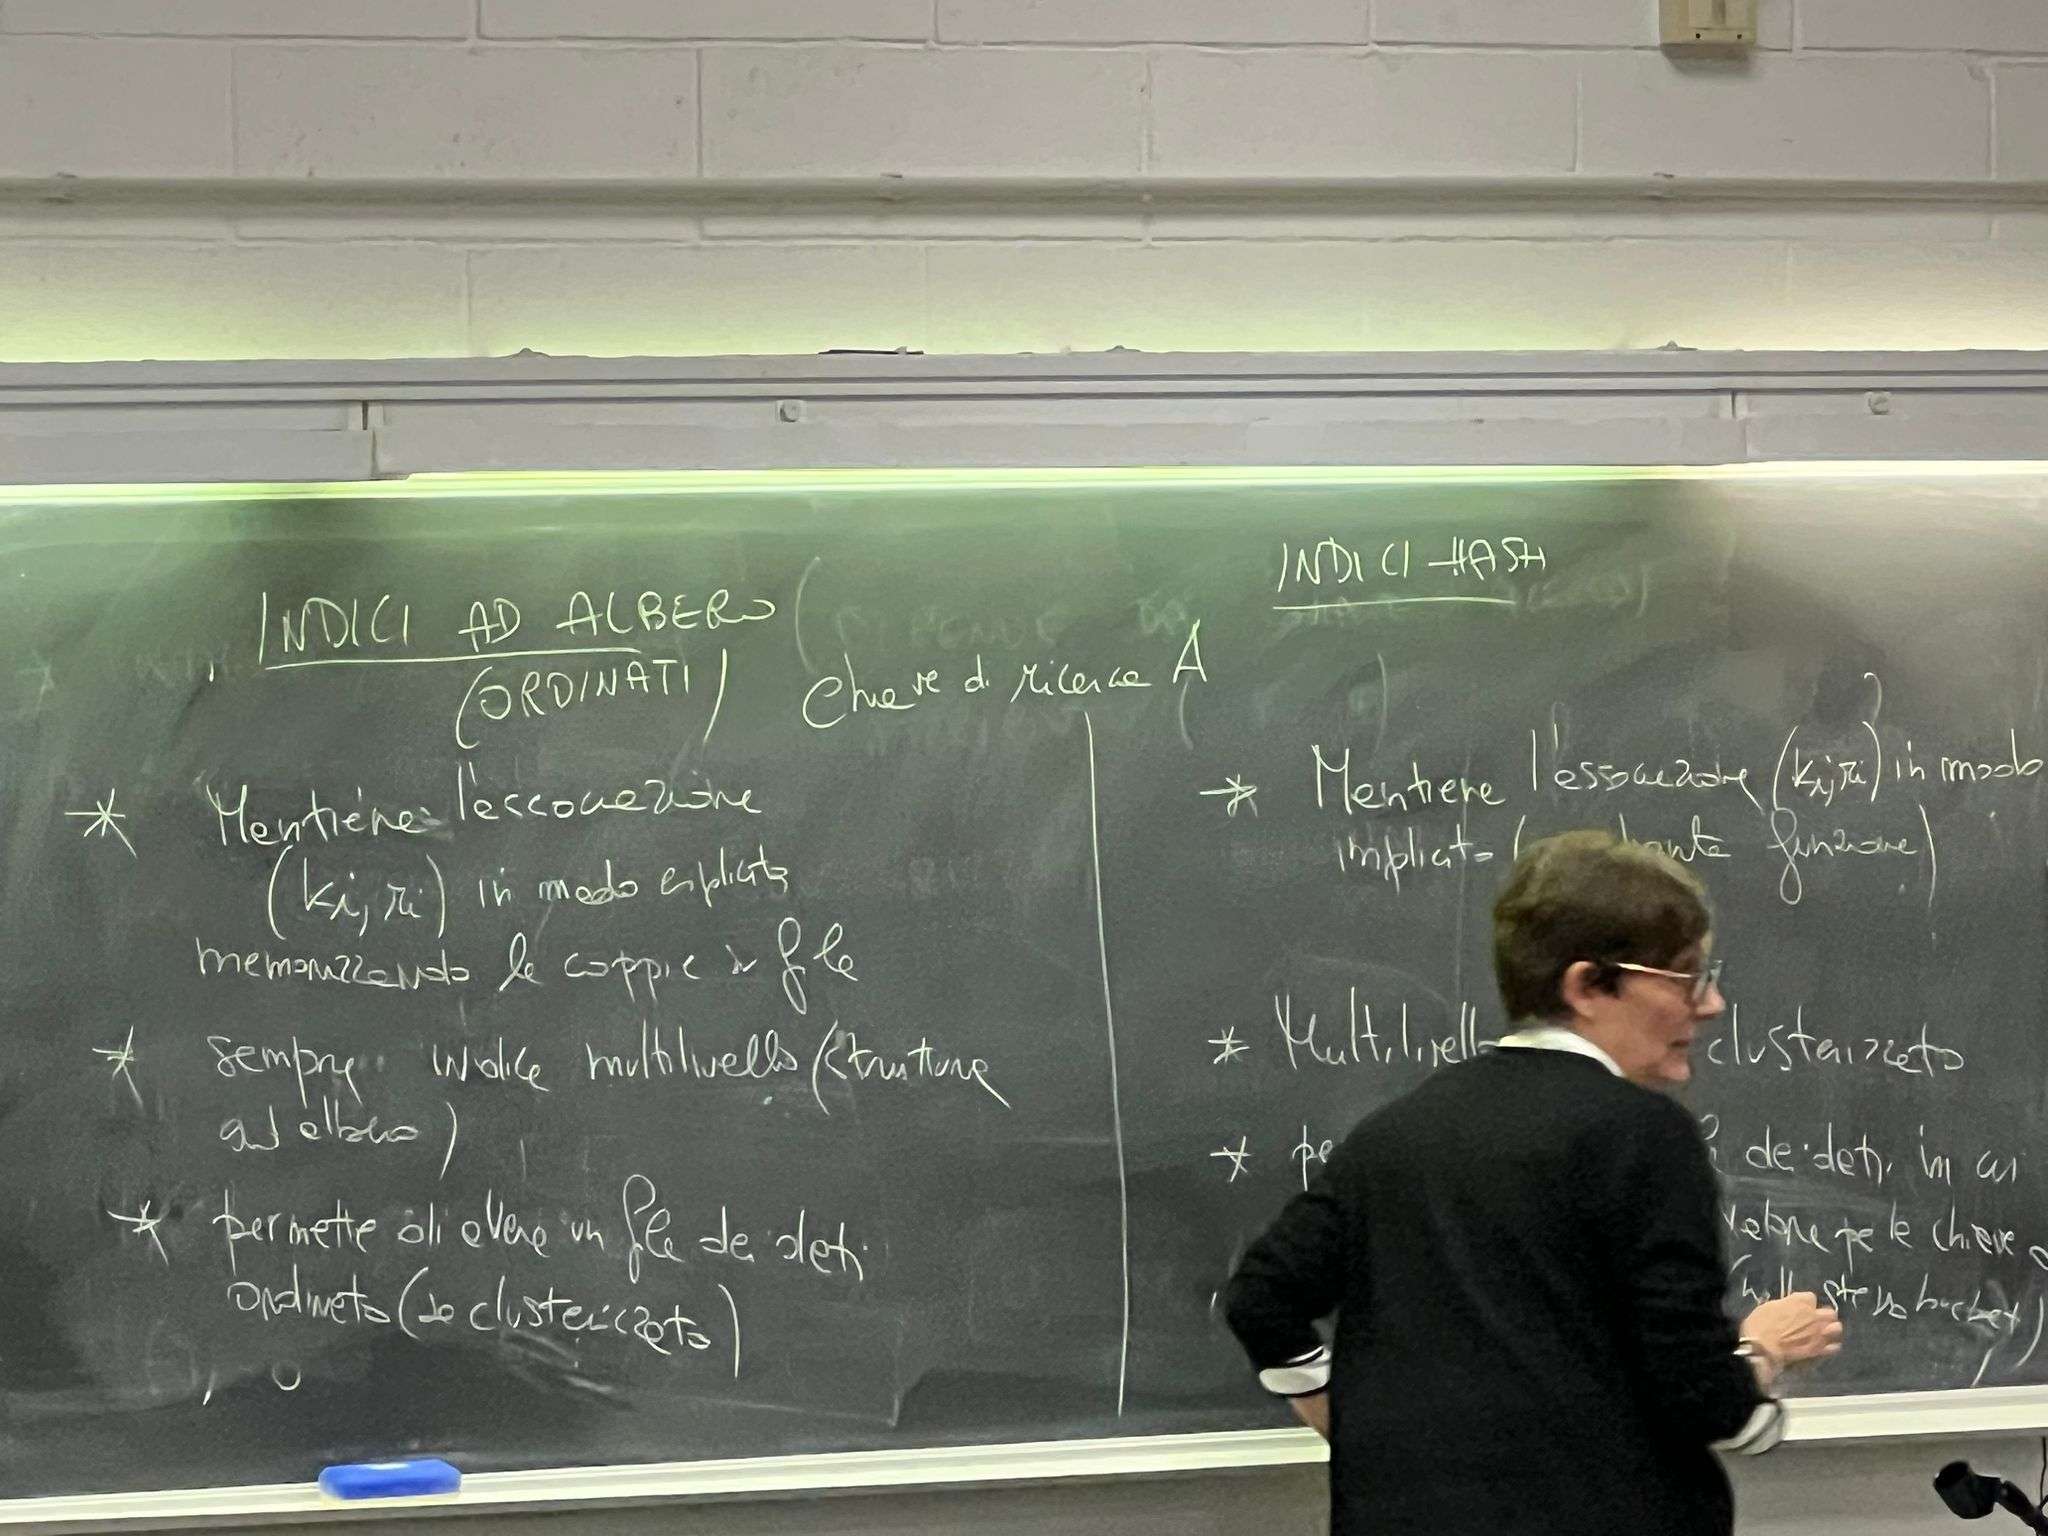 INDICI AD ALBERO
(ORDINATI)
Chiave di ricerca A
* Mantiene l'associazione
(ki, ri) in modo esplicito
memorizzando le coppie in file
* sempre indice multilivello (struttura
ad albero)
* permette di avere un file dei dati
ordinato (se clusterizzato)
INDICI HASH
* Mantiene l'associazione (ki, ri) in modo
implicito ( funzione)
* Multilivello clusterizzato
* dei dati in cui
valore per la chiave
stesso bucket)